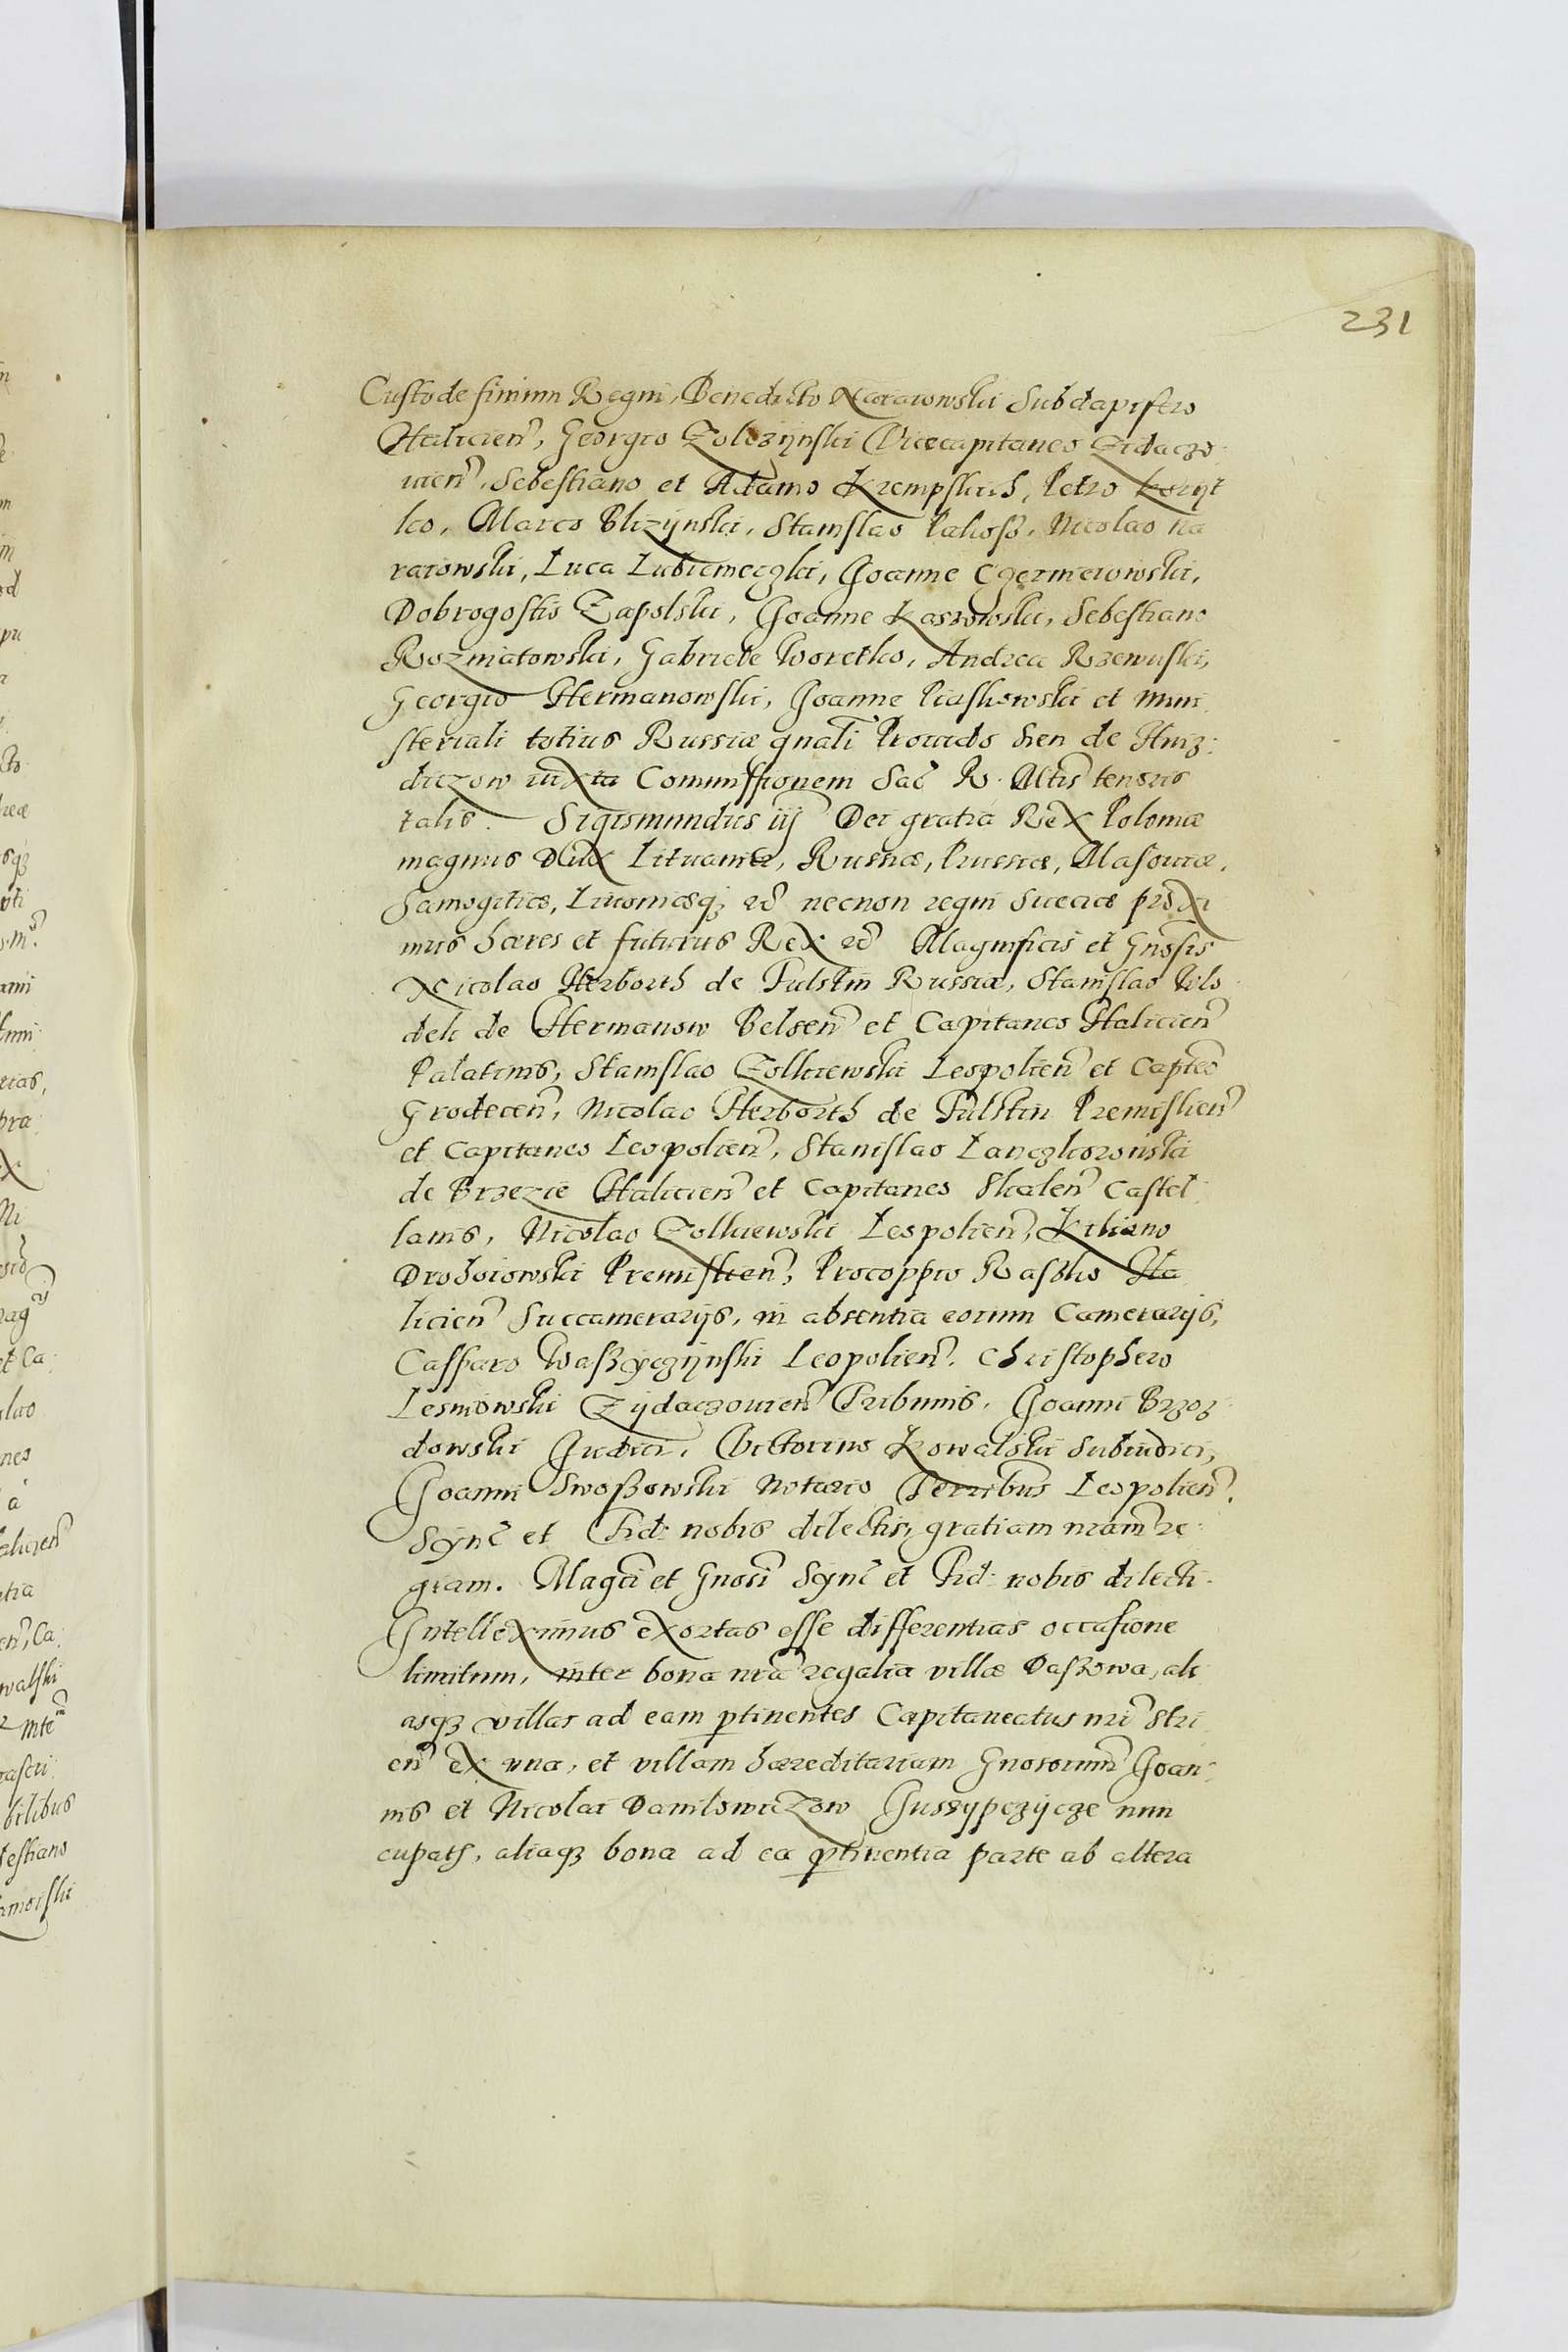 231
Custode finium Regni, Benedicto Nararowski Subdapifero
Halicien̄, Georgio Zolczÿnski Vicecapitaneo Zidaczo
uien̄, Sebestiano et Adamo Krempskich, Petro Korÿt
ko, Marco Blizÿnski, Stanislao Pakosz, Nicolao Na
rarowski, Luca Lubiemeczki, Joanne Czermierowski,
Dobrogostio Zapolski, Joanne Kasrowski, Sebestiano
Rozniatowski, Gabriele Woretko, Andrea Rzewuski,
Georgio Hermanowski, Joanne Piaskowski et mini
steriali totius Russiæ gnāli Prouido Sien de Hniz:
diczow iuxta Comissionem Sac̄ R. Mtis̄ tenoris
talis. Sigismundus iij Dei gratia Rex Poloniæ
magnus Dux Lituaniæ, Russiæ, Prussiæ, Masouiæ,
Samogitiæ, Liuoniæqȝ ec̄ necnon regni Sueciæ proxi
mus hæres et futurus Rex ec̄ Magnificis et Gnosis̄
Nicolao Herborth de Fulstin Russiæ, Stanislao Wlo
dek de Hermanow Belsen̄ et Capitaneo Halicien̄
Palatinis, Stanislao Zolkiewski Leopolien̄ et Captēo
Grodecen̄, Nicolao Herborth de Fulstin Premislien̄
et Capitaneo Leopolien̄, Stanislao Lanczkoronski
de Brzezie Halicien̄ et Capitaneo Skalen̄ Castel
lanis, Nicolao Zolkiewski Leopolien̄, Kiliano
Drohoiowski Premislien̄, Procoppio Raszko Ha
licien̄ Succamerarijs, in absentia eorum Camerarijs,
Casparo Waszÿczÿnski Leopolien̄, Christophero
Lesniowski Zÿdaczouien̄ Tribunis, Joanni Brzoz
dowski Judici, Victorino Kowalski Subiudici,
Joanni Swoszowski Notario Terribus̄ Leopolien̄.
Sÿnc̄ et Fid: nobis dilectis, gratiam nram̄ re
giam. Magci̅ et Gnosi̅ Sÿnc̄ et Fid: nobis dilecti.
Intelleximus exortas esse differentias occasione
limitum, inter bona nrā regalia villæ Daszowa, ali
asqȝ villas ad eam ꝑtinentes Capitaneatus nri̅ Stri
en̄ ex una, et villam hæreditariam Gnosorum̄ Joan
nis et Nicolai Daniłowiczow Jussÿpczÿcze nun
cupatā, aliaqȝ bona ad ea ꝑtinentia parte ab altera